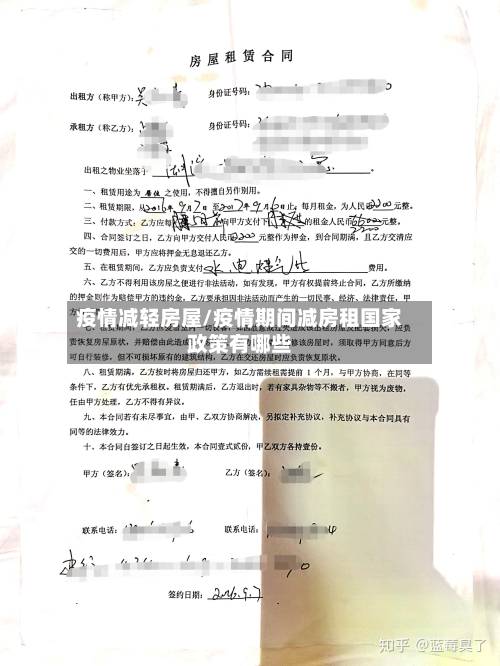 房屋租赁合同
出租方（称甲方）：吴 身份证号码：
承租方（称乙方）： 身份证号码：
出租之物业坐落于
一、租赁用途为 居住 之使用，不得擅自另作别用。
二、租赁期限，从2016年9月7日至2017年9月6日止，每月租金，为人民 2200元整。
三、付款方式：乙方应每 向甲方支付下 的租金人民币 元整。
四、合同签订之日，乙方向甲方交付人民币2200元整作为押金，到合同期满，且乙方交清应
交的一切费用后，甲方应将押金无息退还乙方。
五、在租赁期间，乙方应负责支付 水电燃气 费用。
六、乙方不得利用该房屋之便进行非法活动，如有发现，甲方有权提前终止合同，乙方所缴
的押金则作为赔偿甲方的违约金，乙方要承担因非法活动而产生的一切民事、经济、法律责任，甲
疫情减轻房屋/疫情期间减房租国家
政策有哪些
责恢复房屋原状，并赔偿由此造成 修该房屋时，须取得甲方同意后方
可自行装修，但不可损坏原有的建筑结构，乙方在交还房屋时应负责恢复原状。
八、租赁期满，乙方按时将房屋归还甲方，如乙方需续租需提前 1 个月，与甲方协商，在同等
条件下，乙方有优先承租权。租赁期满后，乙方退出时，若有家具杂物等不搬者，甲方视为废物，
任由甲方处理，乙方不得有异议。
九、本合同若有未尽事宜，由甲、乙双方协商解决，另拟定补充协议，补充协议与本合同具有
同等的法律效力。
十、本合同自签订之日起生效，本合同壹式贰份，甲乙双方各持壹份。
甲方（签名）： 乙方（签名）：
联系电话： 联系电话：
签约日期：2016.9.7
知乎 @蓝莓臭了